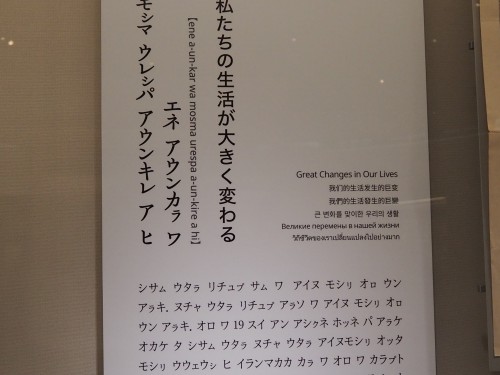 私たちの生活が大きく変わる
[ene a-un-kar wa mosma urespa a-un-kire a hi]
エネ アウンカㇻ ワ
モシマ ウレㇱパ アウンキレ ア ヒ
Great Changes in Our Lives
我们的生活发生的巨变
我們的生活發生的巨變
큰 변화를 맞이한 우리의 생활
Великие перемены в нашей жизни
วิถีชีวิตของเราเปลี่ยนแปลงไปอย่างมาก
シサㇺ ウタㇻ リチュㇷ゚ サㇺ ワ アイヌ モシㇼ オㇿ ウン
アㇻキ. ヌチャ ウタㇻ リチュㇷ゚ アㇻソ ワ アイヌ モシㇼ オㇿ
ウン アㇻキ. オロ ワ 19 スイ アン アシㇰネ ホッネ パ アㇻケ
オカケ タ シサㇺ ウタㇻ ヌチャ ウタㇻ アイヌモシㇼ オッタ
モシㇼ ウウェウシ ヒ イランマカカ カㇻ ワ オロ ワ カラㇷ゚ト